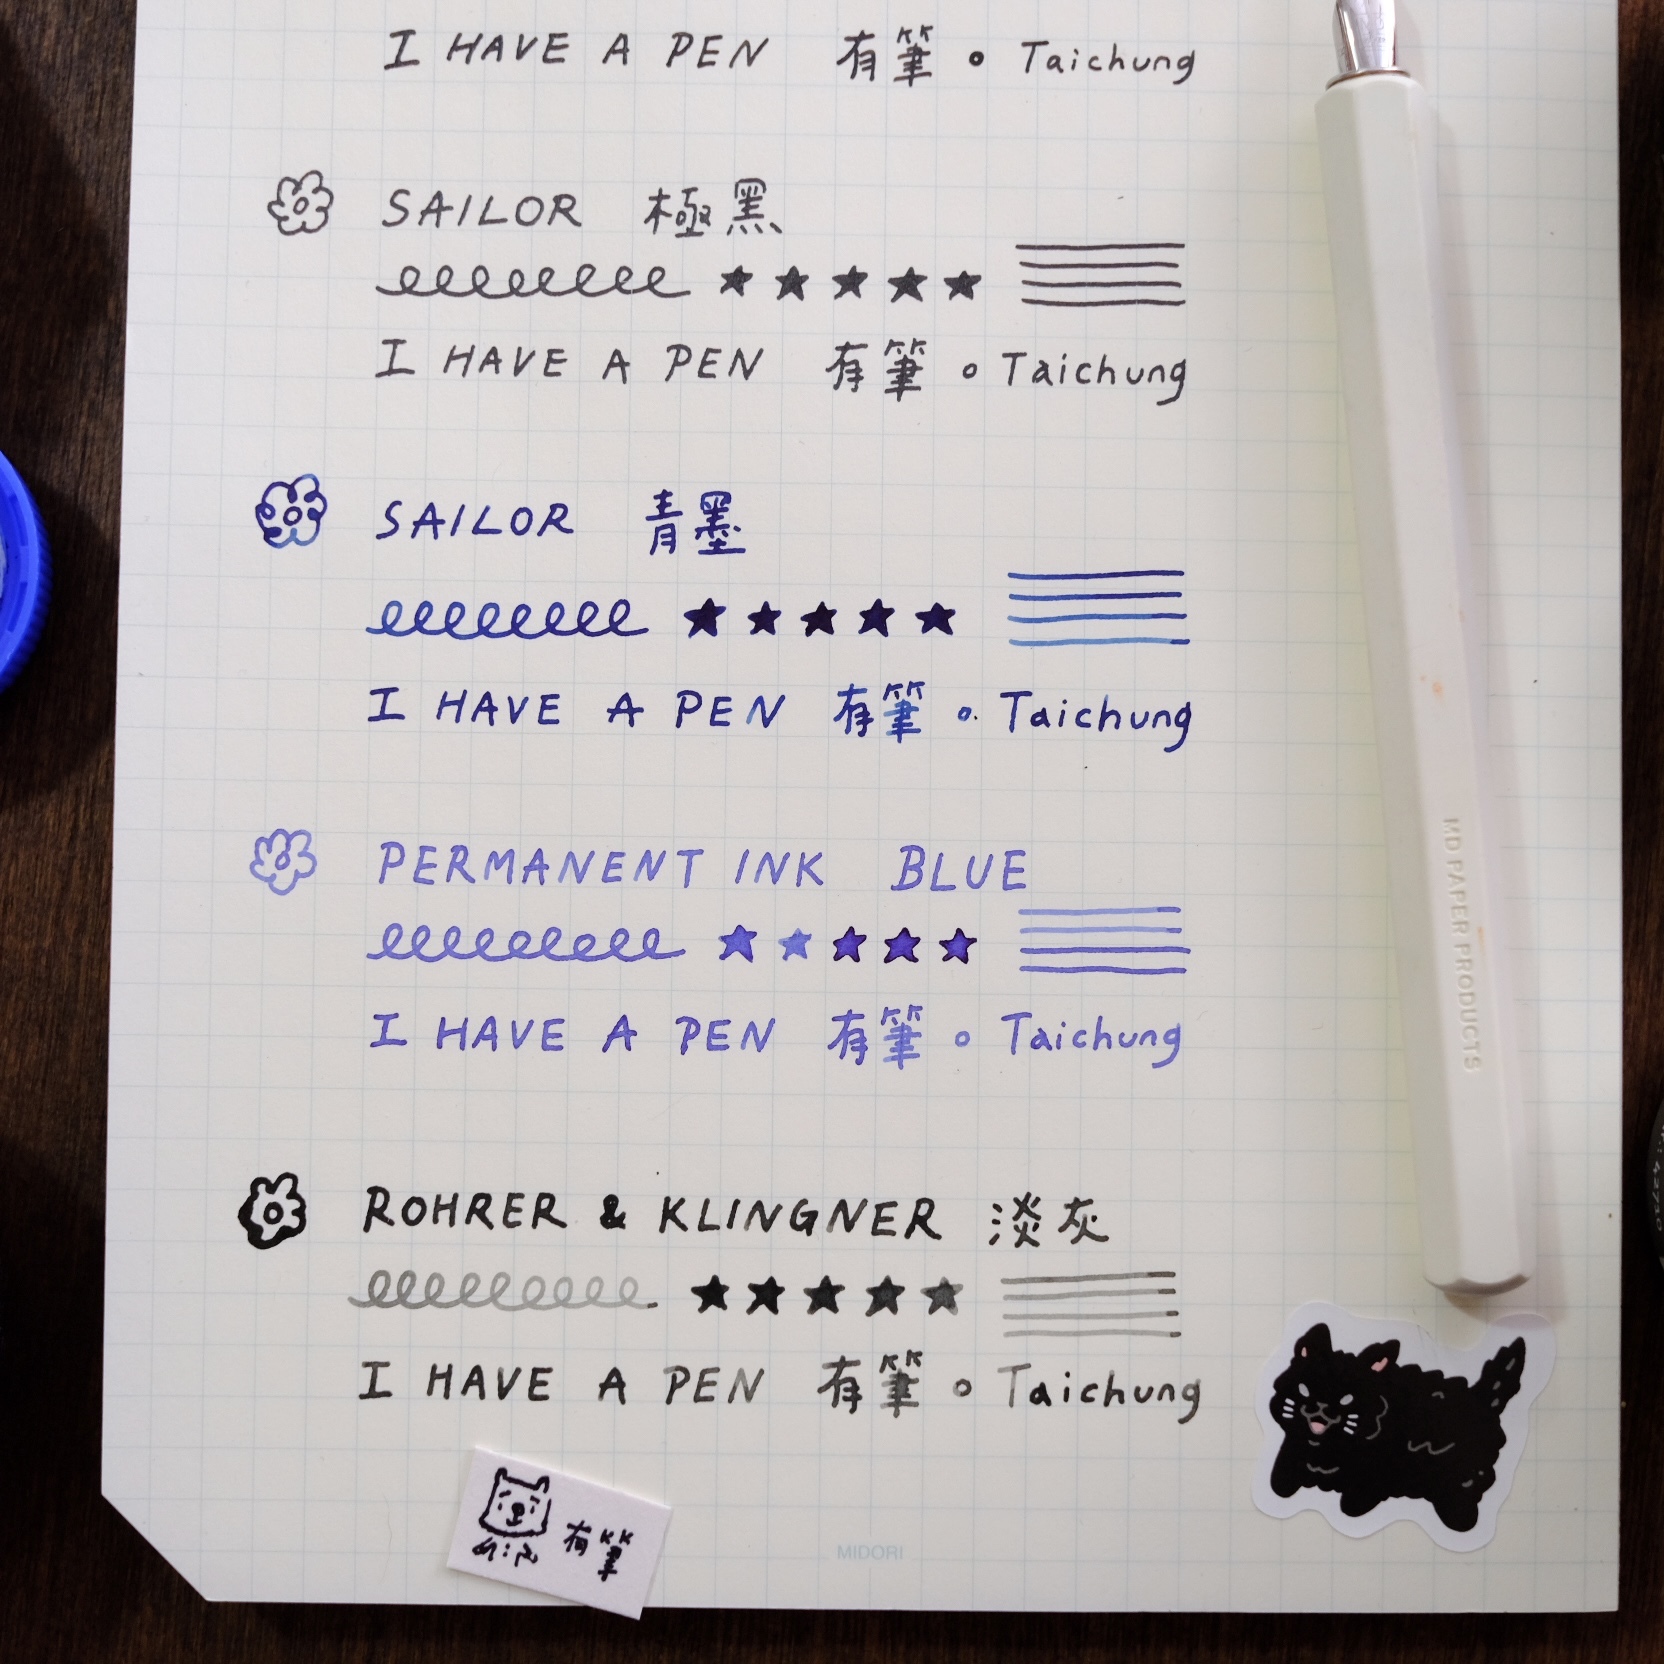 I HAVE A PEN 有筆。Taichung
SAILOR 極黑
I HAVE A PEN 有筆。Taichung
SAILOR 青墨
I HAVE A PEN 有筆。Taichung
PERMANENT INK BLUE
I HAVE A PEN 有筆。Taichung
ROHRER & KLINGNER 淡灰
I HAVE A PEN 有筆。Taichung
有筆
MIDORI
MD PAPER PRODUCTS